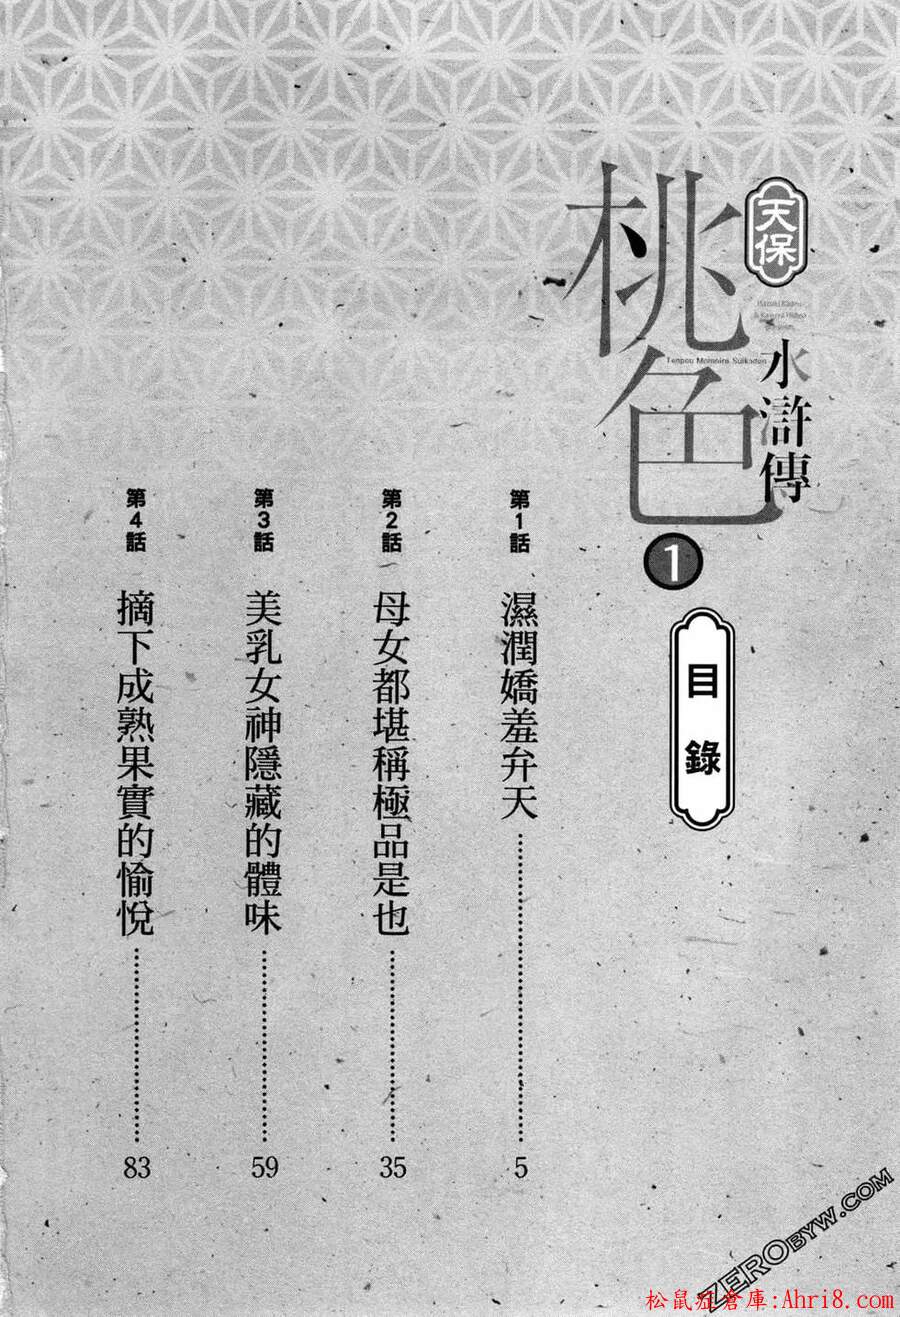 天保
桃色
水滸傳
Tenpou Momoiro Suikoden
1
目錄
第1話 濕潤嬌羞弁天 5
第2話 母女都堪稱極品是也 35
第3話 美乳女神隱藏的體味 59
第4話 摘下成熟果實的愉悅 83
ZEROBYW.COM
松鼠症倉庫:Ahri8.com